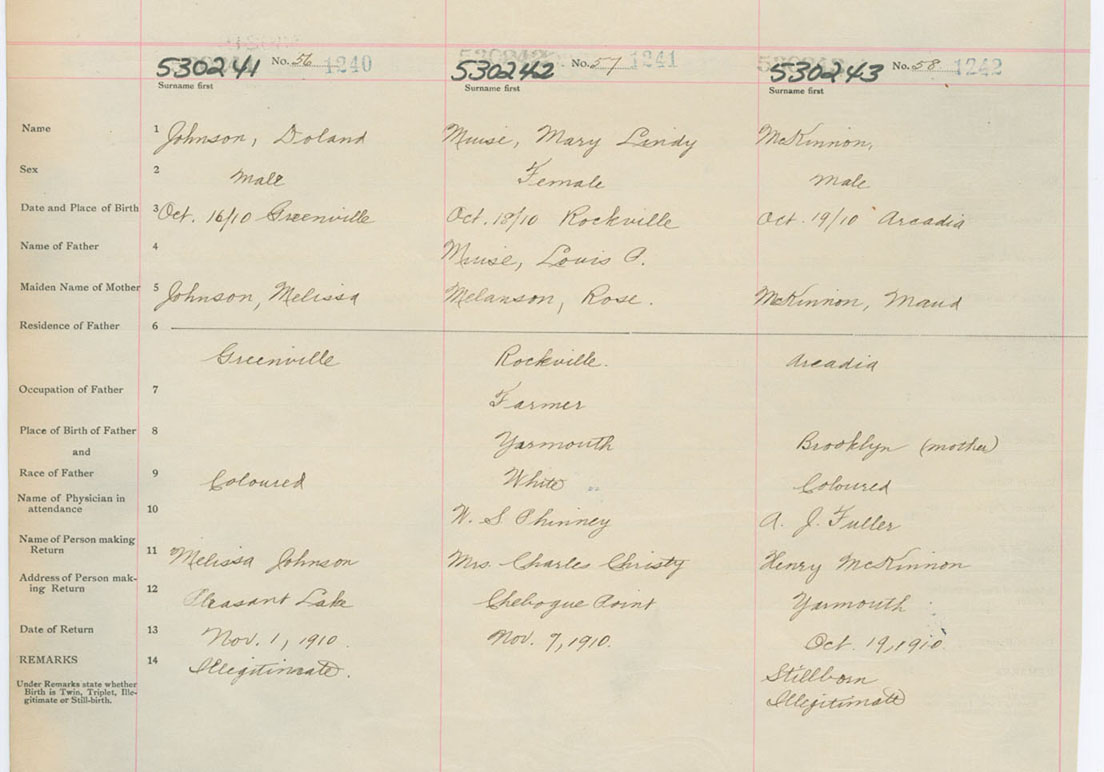 530241 No. 56 1240 530242 No. 57 1241 530243 No. 58 1242
Surname first Surname first Surname first
Name 1 Johnson, Doland Muise, Mary Lindy McKinnon,
Sex 2 Male Female Male
Date and Place of Birth 3 Oct. 16/10 Greenville Oct. 18/10 Rockville Oct. 19/10 Arcadia
Name of Father 4 Muise, Louis P.
Maiden Name of Mother 5 Johnson, Melissa Melanson, Rose. McKinnon, Maud
Residence of Father 6
Greenville Rockville. Arcadia
Occupation of Father 7 Farmer
Place of Birth of Father 8 Yarmouth Brooklyn (mother)
and
Race of Father 9 Coloured White Coloured
Name of Physician in
attendance 10 W. S Phinney A. J. Fuller
Name of Person making
Return 11 Melissa Johnson Mrs. Charles Christy Henry McKinnon
Address of Person mak-
ing Return 12 Pleasant Lake Chebogue Point Yarmouth
Date of Return 13 Nov. 1, 1910. Nov. 7, 1910. Oct. 19, 1910.
REMARKS 14 Illegitimate. Stillborn
Under Remarks state whether
Birth is Twin, Triplet, Ille-
gitimate or Still-birth. Illegitimate